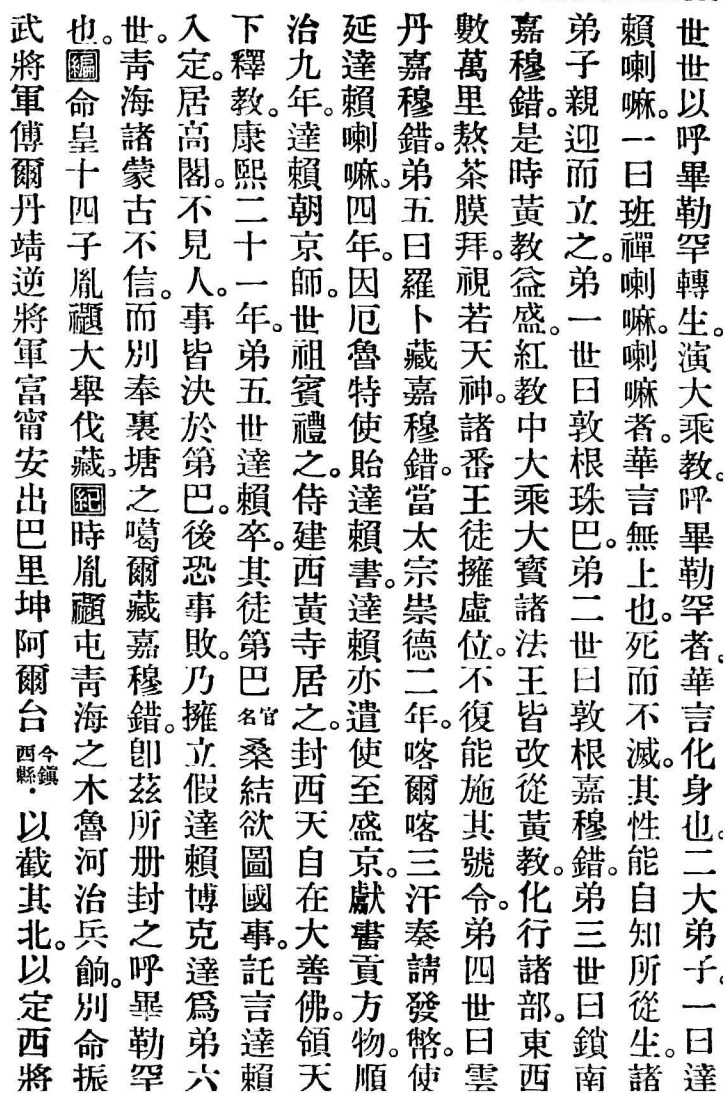 世世以呼畢勒罕轉生。演大乘教。呼畢勒罕者。華言化身也。二大弟子。一曰達
賴喇嘛。一曰班禪喇嘛。喇嘛者。華言無上也。死而不滅。其性能自知所從生。諸
弟子親迎而立之。弟一世曰敦根珠巴。弟二世曰敦根嘉穆錯。弟三世曰鎖南
嘉穆錯。是時黃教益盛。紅教中大乘大寶諸法王皆改從黃教。化行諸部。東西
數萬里熬茶膜拜。視若天神。諸番王徒擁虛位。不復能施其號令。弟四世曰雲
丹嘉穆錯。弟五曰羅卜藏嘉穆錯。當太宗崇德二年。喀爾喀三汗奏請發幣。使
延達賴喇嘛。四年。因厄魯特使貽達賴書。達賴亦遣使至盛京。獻書貢方物。順
治九年。達賴朝京師。世祖賓禮之。侍建西黃寺居之。封西天自在大善佛。領天
下釋教。康熙二十一年。弟五世達賴卒。其徒第巴官名桑結欲圖國事。託言達賴
入定。居高閣。不見人。事皆決於第巴。後恐事敗。乃擁立假達賴博克達爲弟六
世。青海諸蒙古不信。而別奉裏塘之噶爾藏嘉穆錯。卽茲所册封之呼畢勒罕
也。編命皇十四子胤禵大舉伐藏。紀時胤禵屯青海之木魯河治兵餉。別命振
武將軍傅爾丹靖逆將軍富甯安出巴里坤阿爾台今鎭西縣・以截其北。以定西將